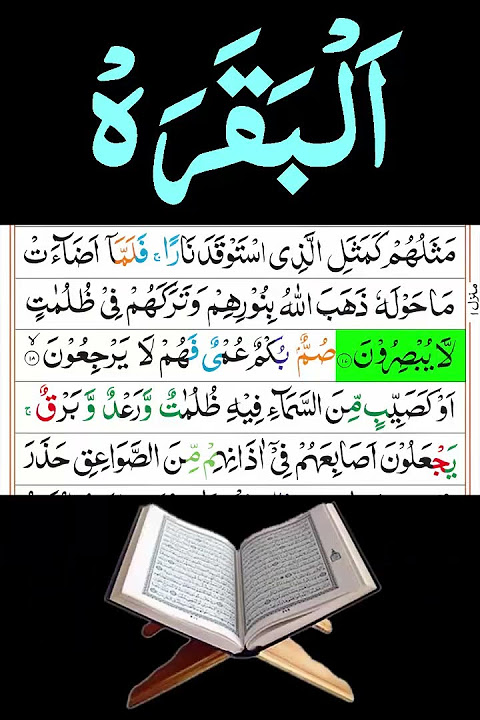 اَلْبَقَرَهْ
مَثَلُهُمْ كَمَثَلِ الَّذِی اسْتَوْقَدَ نَارًا ۚ فَلَمَّاۤ اَضَآءَتْ
مَا حَوْلَهٗ ذَهَبَ اللّٰهُ بِنُوْرِهِمْ وَتَرَكَهُمْ فِیْ ظُلُمٰتٍ
لَّا یُبْصِرُوْنَ ۝۱۷ صُمٌّۢ بُكْمٌ عُمْیٌ فَهُمْ لَا یَرْجِعُوْنَ ۝۱۸ۙ
اَوْ كَصَیِّبٍ مِّنَ السَّمَآءِ فِیْهِ ظُلُمٰتٌ وَّرَعْدٌ وَّبَرْقٌ ۚ
یَجْعَلُوْنَ اَصَابِعَهُمْ فِیْۤ اٰذَانِهِمْ مِّنَ الصَّوَاعِقِ حَذَرَ
منزل ۱